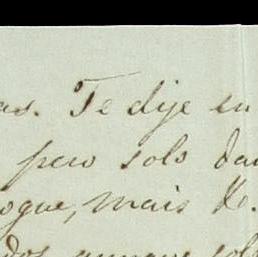 as. Te dije en
pero solo dan
ogue, mais &.
dos aunque sol